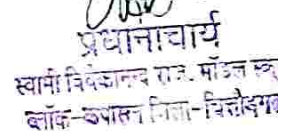 प्रधानाचार्य
स्वामी विवेकानन्द राज. मॉडल स्कू
ब्लॉक-कपासन जिला-चित्तौड़गढ़